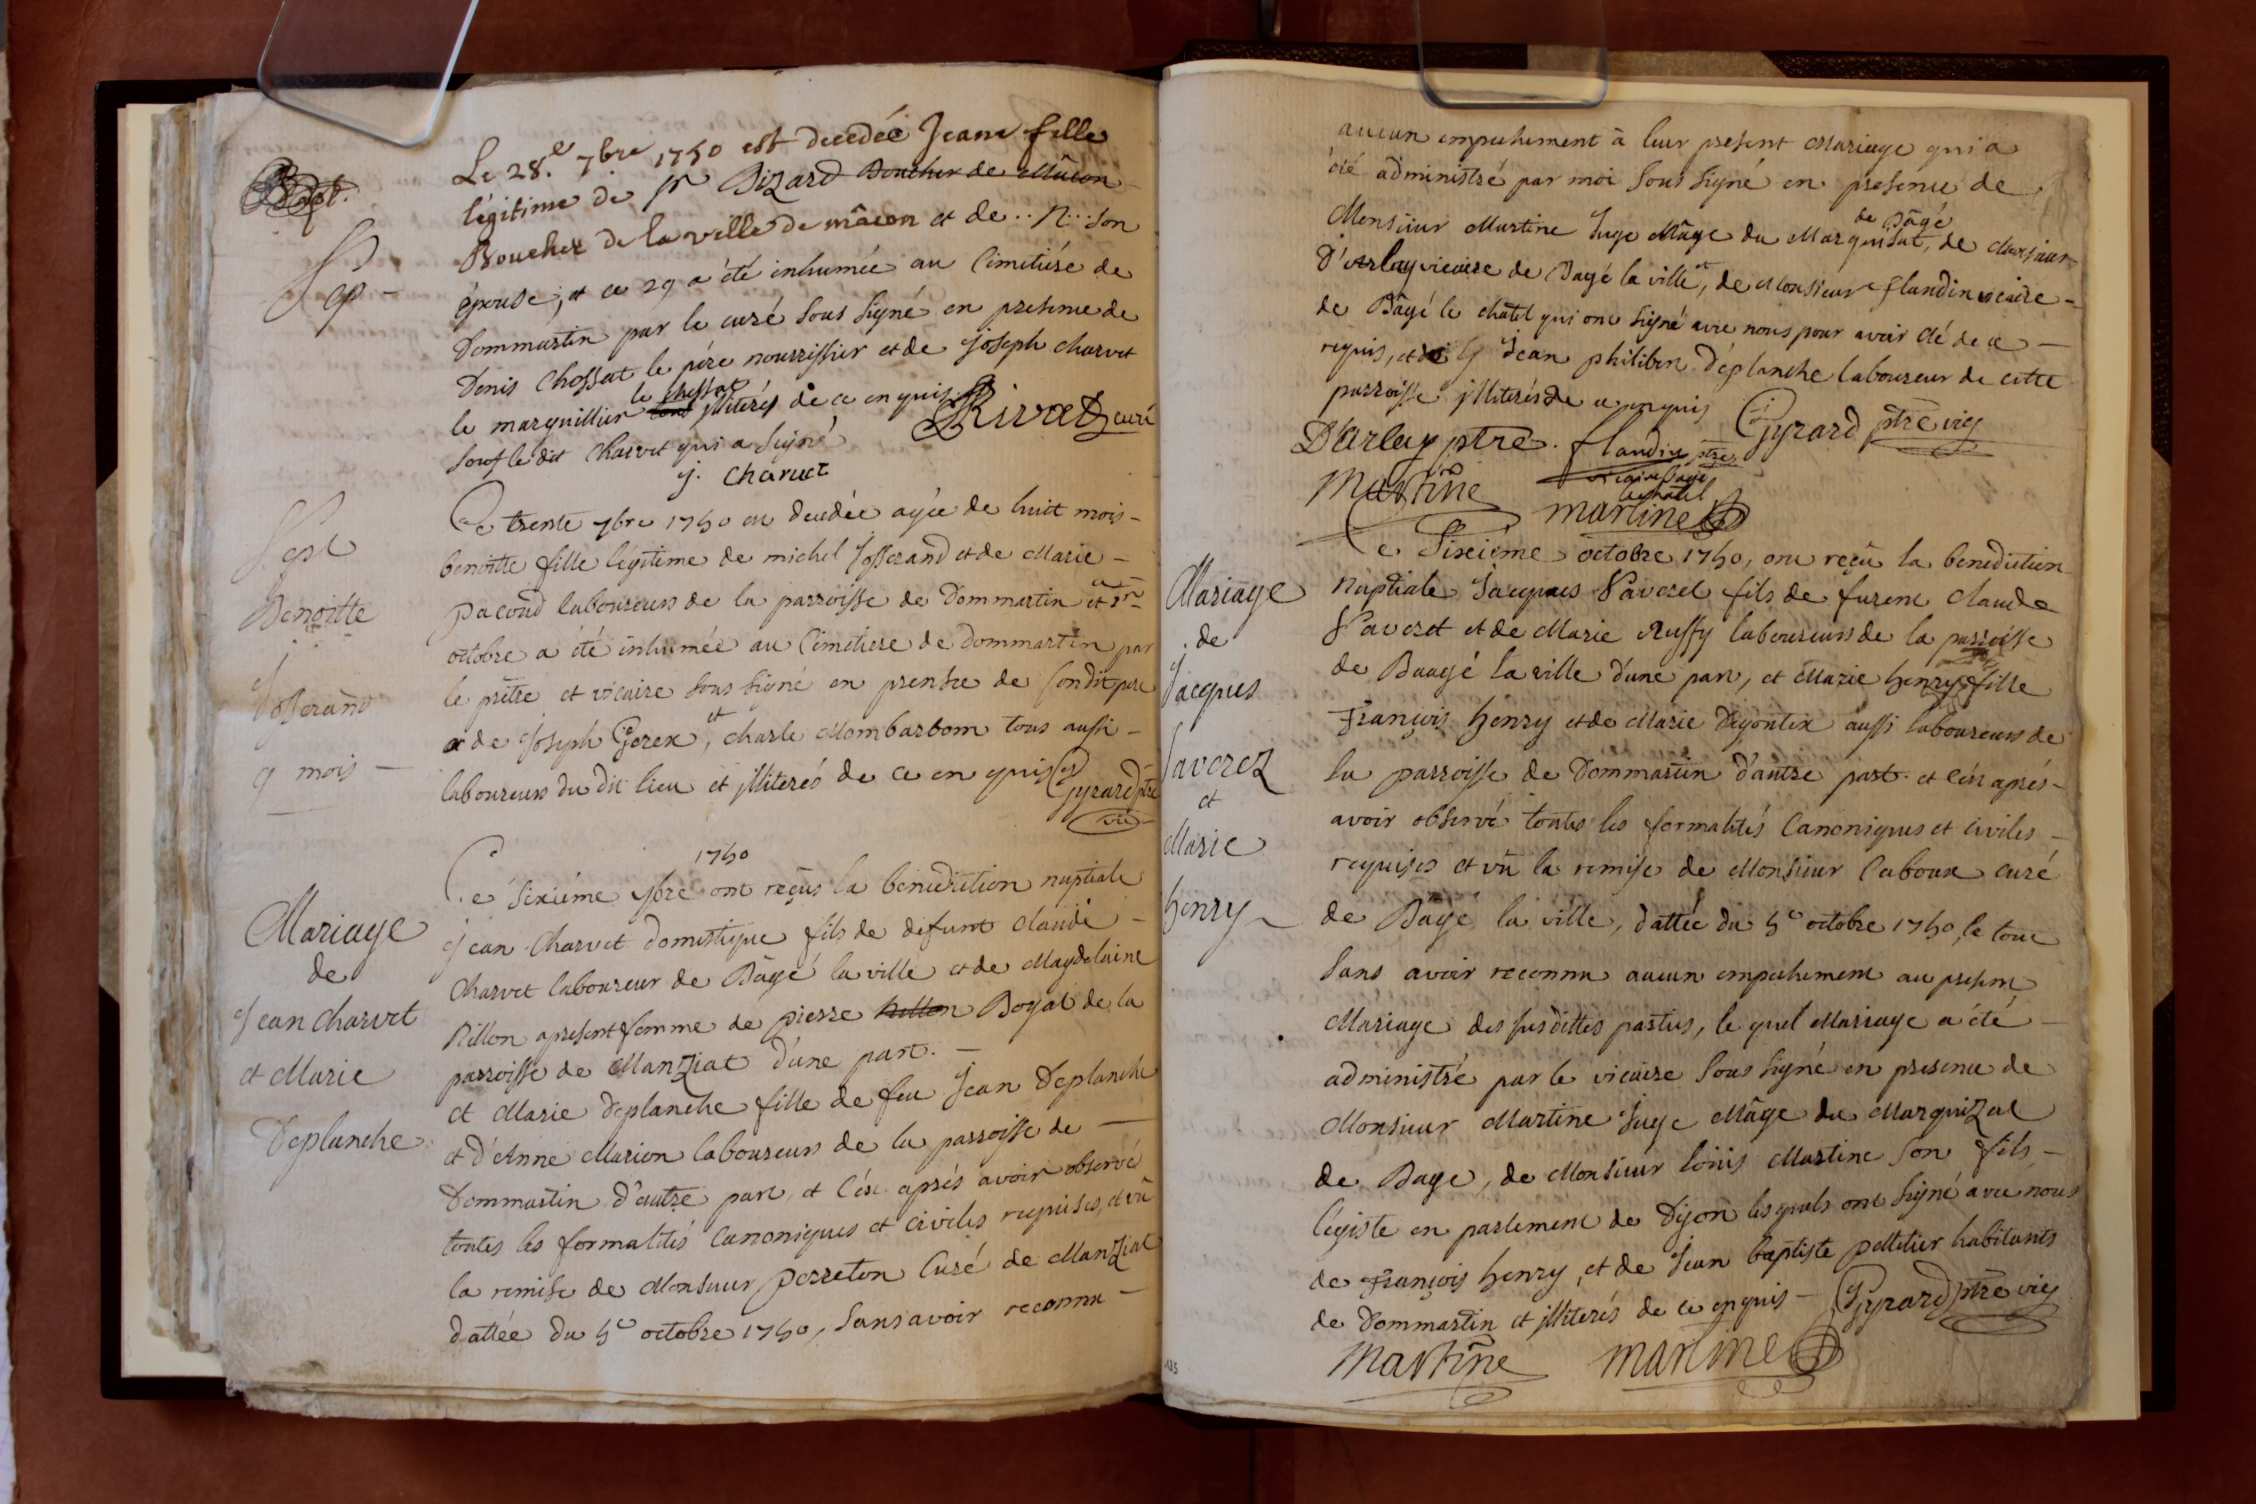 Bapt.
Sep
Le 28.e 7bre 1750 est decedée Jeane fille
légitime de pre Bizard Boucher de Mâcon
Boucher de la ville de mâcon et de .. N... son
épouse, et ce 29 a été inhumée au Cimetiére de
Dommartin par le curé sous signé en presence de
Denis Chossat le pére nourrissier et de joseph charvet
le marguillier le chossat illiterés de ce enquis
souf le dit Charvet qui a signé Rivat curé
j. Charuet
Sepl
Benoitte
josserand
9 mois
Ce trente 7bre 1750 est decedée agée de huit mois
benoitte fille légitime de michel josserand et de Marie
pacoud laboureurs de la parroisse de Dommartin et
octobre a été inhumée au Cimetiere de Dommartin par
le prêtre et vicaire sous signé en presence de son dit pere
de joseph Gerex, et charle Mombarbom tous aussi
laboureurs du dit lieu et illiterés de ce en quis Gyrard ptre
vic
Mariage
de
jean charvet
et Marie
Deplanche
1750
Ce sixiéme 8bre ont reçus la benediction nuptiale
jean Charvet domestique fils de defunt Claude
Charvet laboureur de Bâgé la ville et de Magdelaine
Rillon apresent femme de pierre Boyat de la
parroisse de Manziat d'une part.
et Marie Deplanche fille de feu jean Deplanche
et d'Anne Marion laboureurs de la parroisse de
Dommartin d'autre part, et c'est aprés avoir observé
toutes les formalités Canoniques et Civiles requises, et vû
la remise de Monsieur perreton Curé de Manziat
dattée du 5e octobre 1750, sans avoir reconnu
aucun empechement à leur present Mariage qui a
été administré par moi sous signé en presence de
de Bâgé
Monsieur Martine juge Mâge du Marquisat, de Monsieur
D'arlay vicaire de Bagé la ville, et de Monsieur flandin vicaire
de Bâgé le chatel qui ont signé avec nous pour avoir été de ce
requis, et jean philibert déplanche laboureur de cette
parroisse illiterés de ce enquis Gyrard ptre vic
D'arlay ptre. flandin ptre
vicaire Bagé
le chatel
Martine martine
Mariage
de
jacques
Saverez
et
Marie
henry
Ce sixiéme octobre 1750, ont reçû la benediction
nuptiale jacques Saveret fils de furent Claude
Saveret et de Marie Ruffy laboureurs de la parroisse
de Baagé la ville d'une part, et Marie henry fille
françois henry et de Marie Degontex aussi laboureurs de
la parroisse de Dommartin d'autre part. et c'est aprés
avoir observé toutes les formalités Canoniques et civiles
requises et vû la remise de Monsieur Caboux curé
de Bâgé la ville, dattée du 5e octobre 1750, le tout
sans avoir reconnu aucun empechement au present
Mariage des susdittes parties, le quel Mariage a été
administré par le vicaire sous signé en presence de
Monsieur Martine juge Mâge du Marquizat
de Bage, de Monsieur loüis Martine son fils
légiste en parlement de Dijon lesquels ont signé avec nous
de françois henry, et de jean baptiste pelletier habitants
de Dommartin et illiterés de ce enquis Gyrard ptre vic
Martine martine